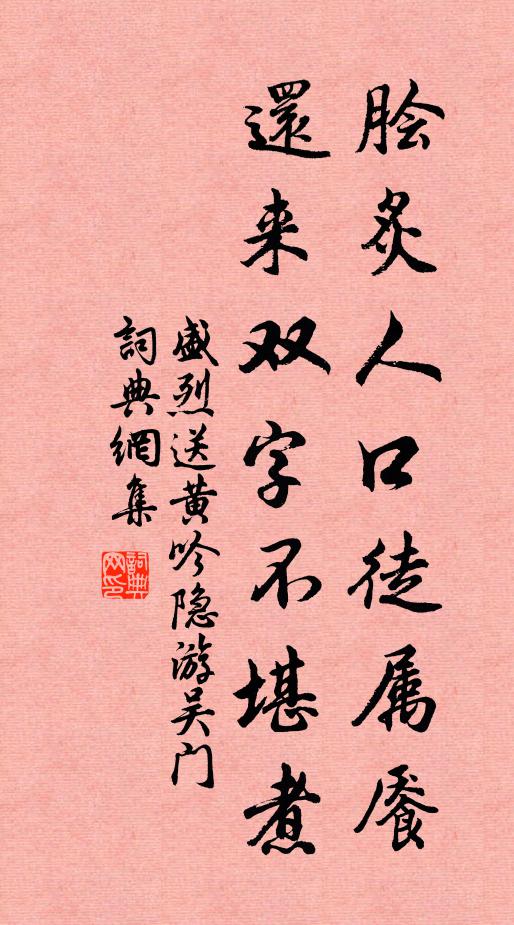 脍炙人口徒属餍
還来双字不堪煮
盛烈送黄吟隐游吴门
詞典網集
詞典網印